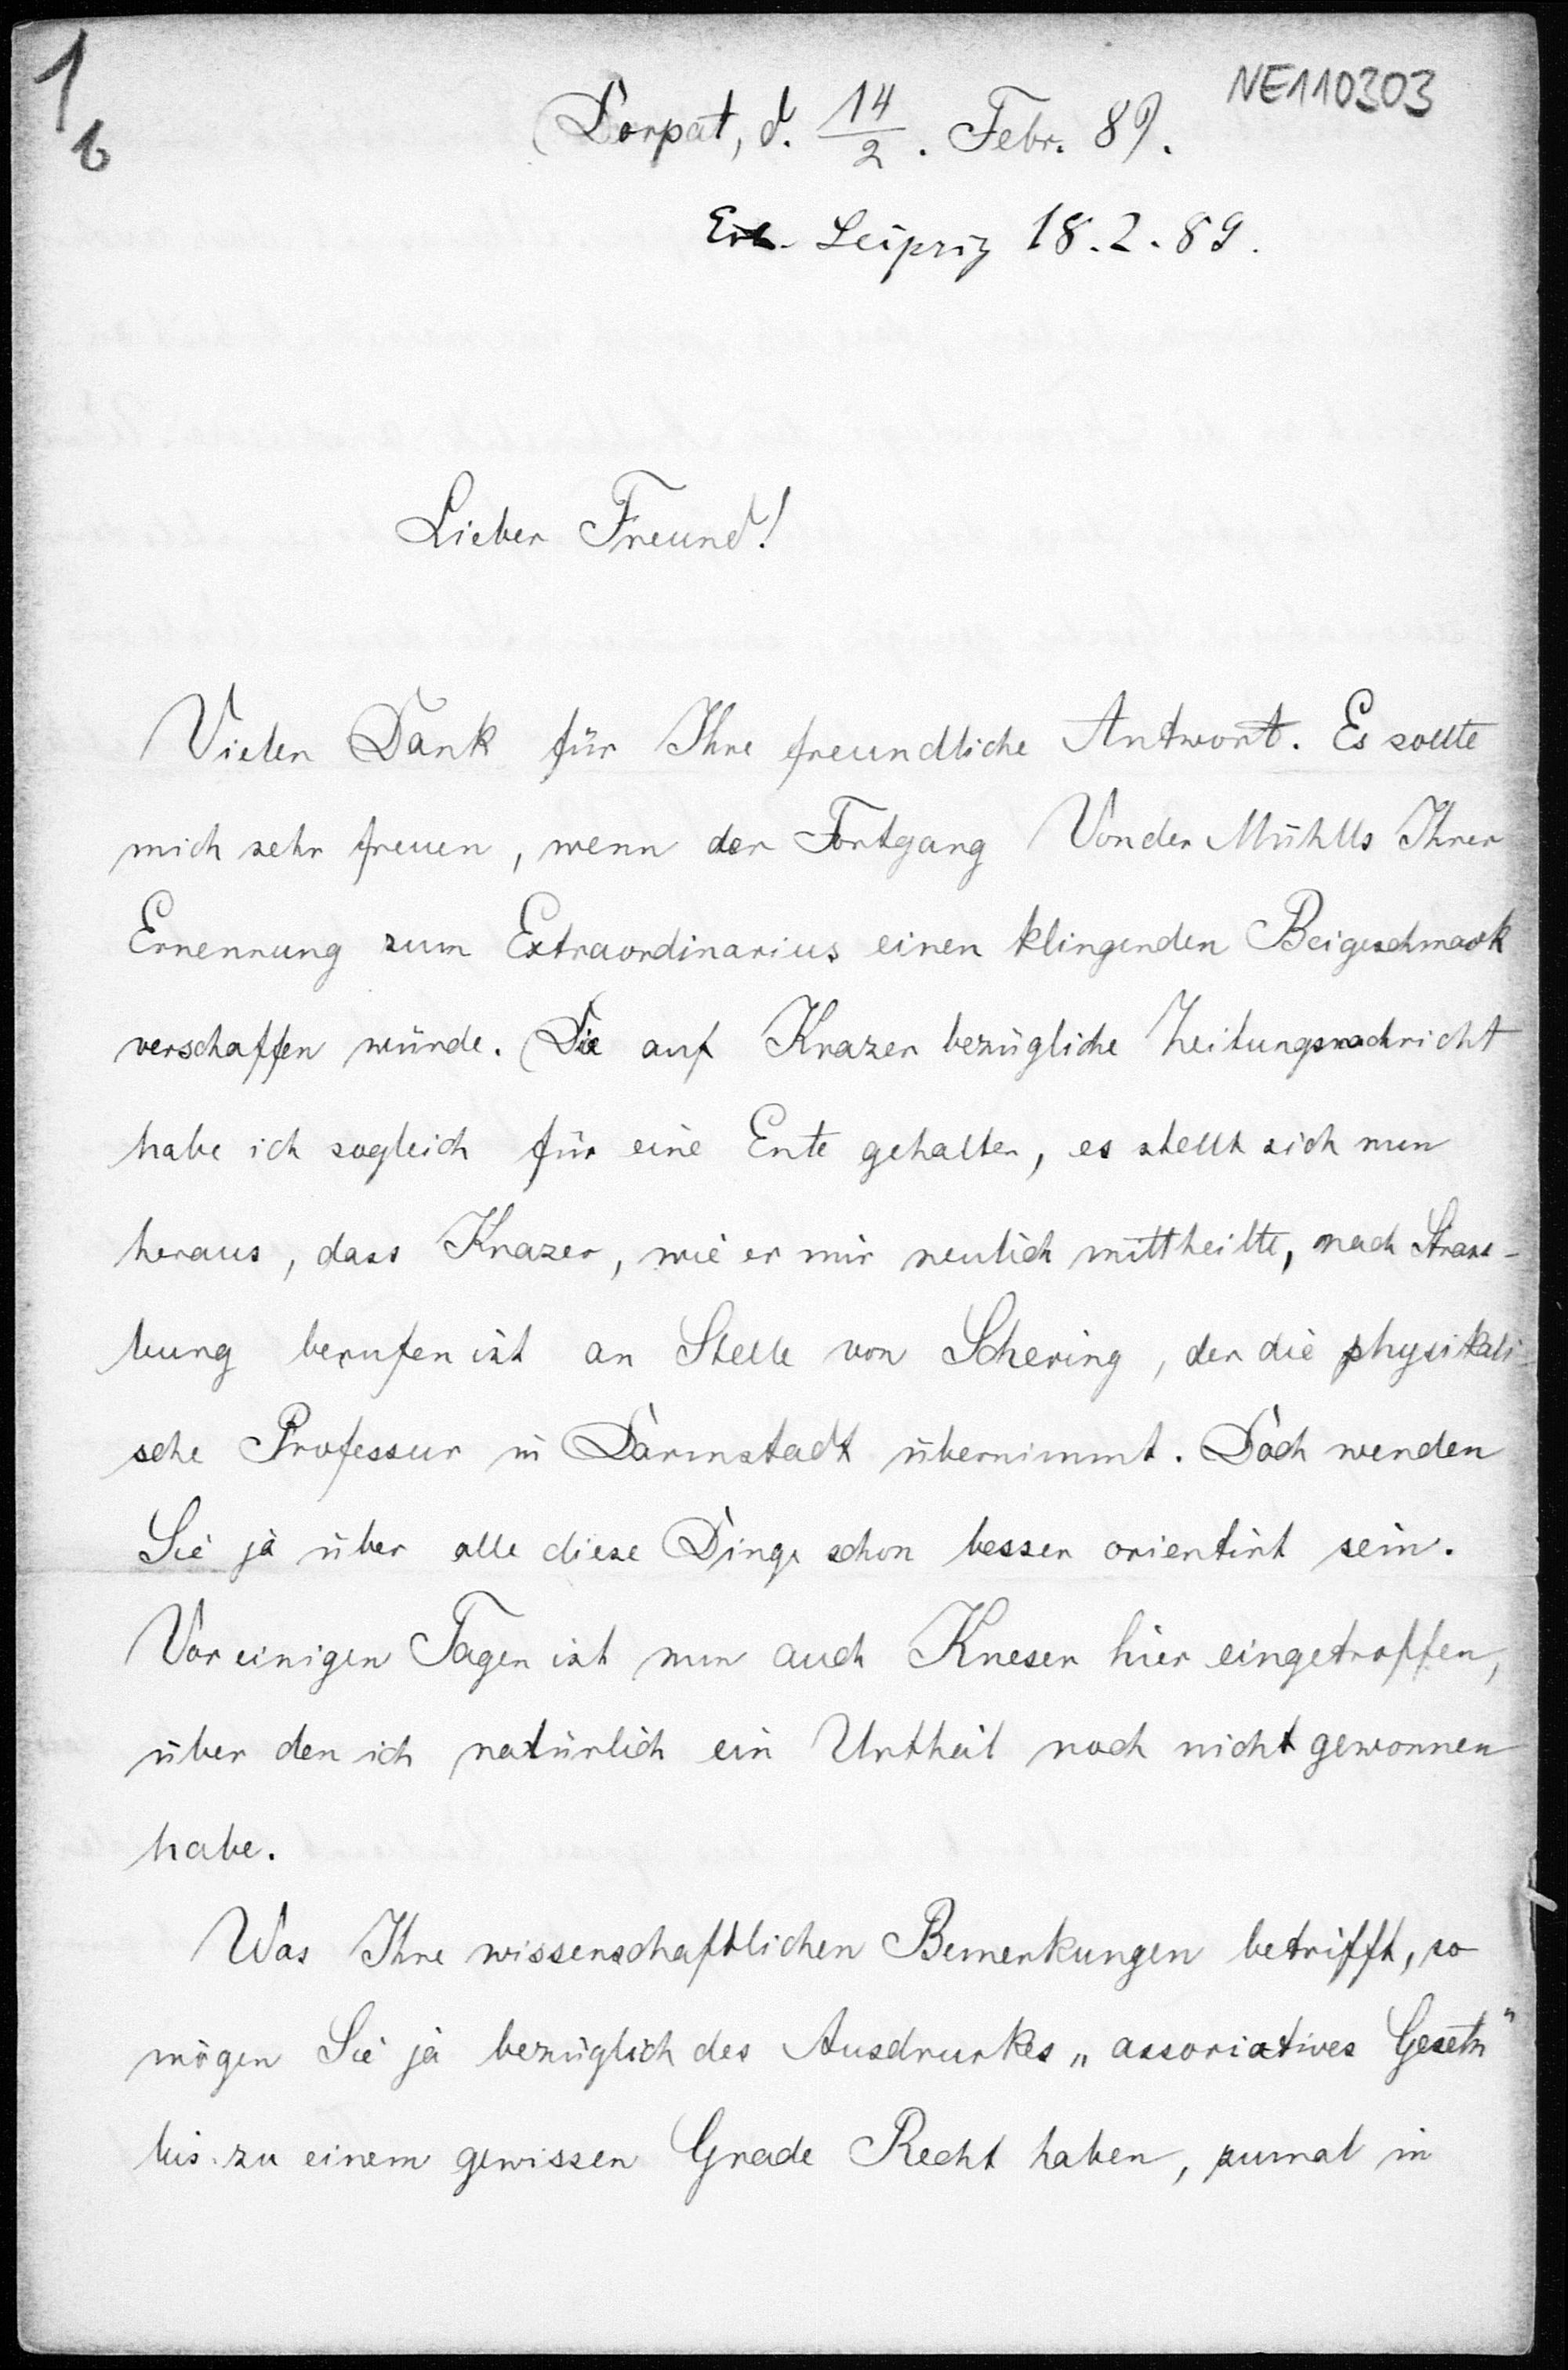 1
6
NE110303
Dorpat, d. 14/2. Febr. 89.
Erh. Leipzig 18.2.89.
Lieber Freund!
Vielen Dank für Ihre freundliche Antwort. Es sollte
mich sehr freuen, wenn der Fortgang Von der Mühlls Ihrer
Ernennung zum Extraordinarius einen klingenden Beigeschmack
verschaffen würde. Die auf Krazer bezügliche Zeitungsnachricht
habe ich sogleich für eine Ente gehalten, es stellt sich nun
heraus, dass Krazer, wie er mir neulich mittheilte, nach Strass-
burg berufen ist an Stelle von Schering, der die physikali-
sche Professur in Darmstadt übernimmt. Doch werden
Sie ja über alle diese Dinge schon besser orientirt sein.
Vor einigen Tagen ist nun auch Kneser hier eingetroffen,
über den ich natürlich ein Urtheil noch nicht gewonnen
habe.
Was Ihre wissenschaftlichen Bemerkungen betrifft, so
mögen Sie ja bezüglich des Ausdruckes „associatives Gesetz"
bis zu einem gewissen Grade Recht haben, zumal in